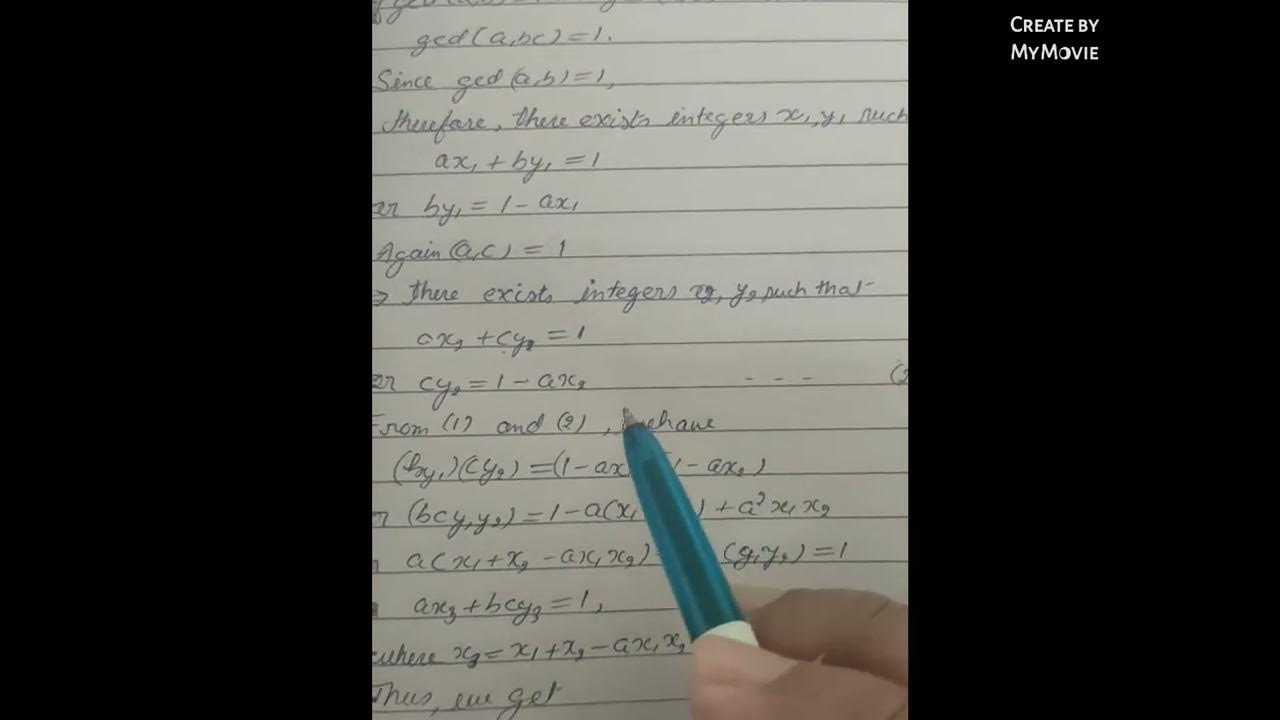 CREATE BY
MYMOVIE
gcd(a,bc)=1.
Since gcd(a,b)=1,
therefore, there exists integers x₁,y₁ such
ax₁+by₁=1
or by₁=1-ax₁
Again(a,c)=1
⇒ there exists integers x₂,y₂ such that
ax₂+cy₂=1
or cy₂=1-ax₂ --- (2
From (1) and (2), we have
(by₁)(cy₂)=(1-ax (1-ax₂)
(bcy₁y₂)=1-a(x₁ )+a²x₁x₂
a(x₁+x₂-ax₁x₂) (y₁y₂)=1
ax₃+bcy₃=1,
where x₃=x₁+x₂-ax₁x₂
Thus, we get